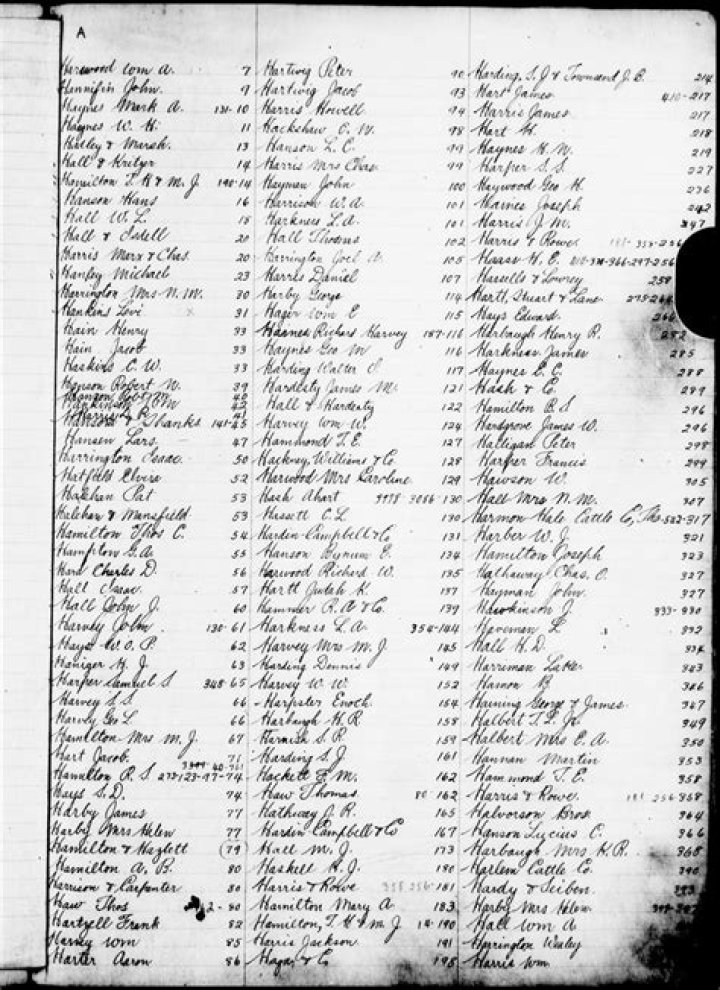 A
Harwood Wm A. 7
Hannifin John. 9
Haynes Mark A. 131-10
Haynes W. H. 11
& Marsh. 13
Hall & 14
Hamilton T. H & M. J. 190-14
Hanson Hans 16
Hall W. L. 18
Hall & Isdell 20
Harris Mars & Chas. 20
Hanley Michael 23
Harrington Mrs N. M. 30
Hankins Levi 31
Hain Henry 33
Hain Jacob 33
Haskins C. W. 33
Hanson Robert N. 39
Hanson Robt 40
42
Harris L. R. 41
& Shanks 141-45
Hansen Lars. 47
Harrington Isaac. 50
Hatfield Elvira 52
Pat 53
& Mansfield 53
Hamilton Thos C. 54
Hampton G. A. 55
Hard Charles D. 56
Hall Isaac. 57
Hall John J. 60
Harvey John 130-61
Hays W. O. P. 62
Haniger H. J. 63
Harper Samuel S 348-65
Harvey S. S. 66
Harvey Geo L. 66
Hamilton Mrs M. J. 67
Hart Jacob. 71
Hamilton R. S 273-123-97-74
Hays S. D. 74
Harby James 77
Harby Mrs Helen 77
Hamilton & Hazlett (79)
Hamilton A. B. 80
Harrison & Carpenter 80
Haw Thos 80
Hartzell Frank 82
Harvey Wm 85
Harter Aaron 86
Hartwig Peter 90
Hartwig Jacob 93
Harris Howell 94
Hackshaw C. W. 98
Hanson L. C. 99
Harris Mrs Chas. 99
Hayman John 100
Harrison W. A. 101
Harkness L. A. 101
Hall Thomas 102
Harrington Joel A. 105
Harris Daniel 107
Harby George 114
Hager Wm E 115
Haines Richard Harvey 187-116
Haynes Geo M 116
Harding Walter 117
Hardesty James M. 121
Hall & Hardesty 122
Harvey Wm W. 124
Hammond T. E. 127
Hackney, Williams & Co. 128
Harwood Mrs Caroline 129
Hash Abart 130
Hassett C. L. 130
Hardin-Campbell & Co 131
Hanson Bynum E. 134
Harwood Richard W. 135
Hartt Judah K. 137
Hammer R. A & Co. 139
Harkness L. A. 354-144
Harvey Mrs M. J. 145
Harding Dennis 149
Harvey W. W. 152
Harpster Enoch. 154
Harbaugh H. R. 158
Harnish S. P. 159
Harding S. J. 161
Hackett F. M. 162
Haw Thomas. 80 162
Hathway J. R. 165
Hardin Campbell & Co 167
Hall M. J. 173
Haskell H. J. 180
Harris & Rowe 358 256-181
Hamilton Mary A 183
Hamilton, T. H & M. J 14-190
Harris Jackson. 191
Hagar & C 195
Harding, S. J & Townsend J. B. 214
Hart James 410-217
Harris James. 217
Hart H. 218
Haynes H. N. 219
Harper S. S. 227
Haywood Geo H. 236
Haines Joseph 242
Harris J. M. 247
Harris & Rowe 181-358-256
Haase H. E. 366-297-256
Harsells & Lowrey 258
Hartt, Stuart & Lane 275-264
Hays Edward. 266
Harbaugh Henry R. 282
Harkness James 285
Haynes E. C. 288
Hash & C. 289
Hamilton B. S 296
Hardgrove James W. 296
Halligan Peter 298
Harper Francis 299
Hawson W. 305
Hall Mrs N. M. 307
Harmon Hale Cattle Co, The-532-317
Harber W. J. 321
Hamilton Joseph 323
Hathaway Chas. O. 327
Hayman John. 327
Hawkinson J. 333-330
Haveman L 332
Hall H. D. 334
Harreman 343
Hamon B 346
Haining George & James. 347
Halbert T. L. Jr. 349
Halbert Mrs E. A. 350
Hannan Martin 353
Hammond T. E. 358
Harris & Rowe. 181 256-358
Halvorson Bros. 364
Hanson Lucius C. 366
Harbaugh Mrs H. R. 368
Harlem Cattle Co. 390
Hardy & Seiben. 393
Harby Mrs Helen.
Hall Wm A
Harrington Wesley
Harris Wm.